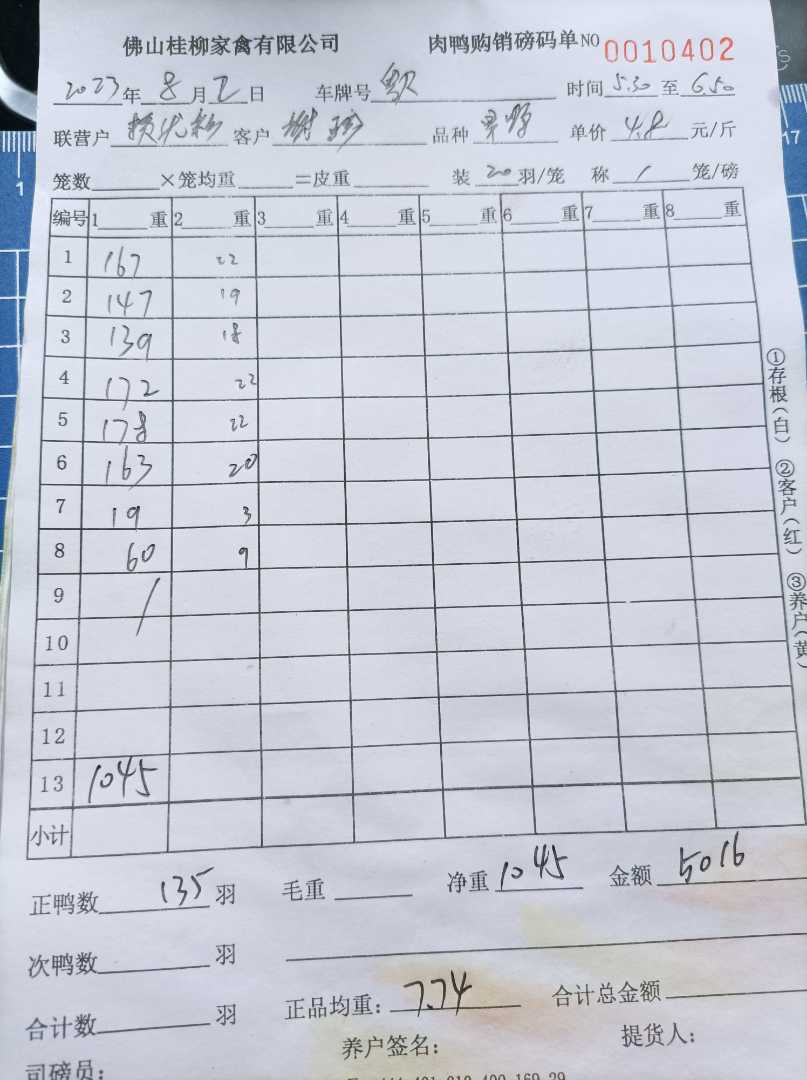 佛山桂柳家禽有限公司 肉鸭购销磅码单NO 0010402
2023年8月2日 车牌号 时间5.30至6.50
联营户 客户 品种 单价4.8元/斤
笼数 ×笼均重 =皮重 装20羽/笼 称/笼/磅
编号 1 重 2 重 3 重 4 重 5 重 6 重 7 重 8 重
1 167 22
2 147 19
3 139 18
4 172 22
5 178 22
6 163 20
7 19 3
8 60 9
9 /
10
11
12
13 1045
小计
正鸭数135羽 毛重 净重1045 金额5016
次鸭数 羽
合计数 羽 正品均重:7.74 合计总金额
司磅员: 养户签名: 提货人:
①存根(白) ②客户(红) ③养户(黄)